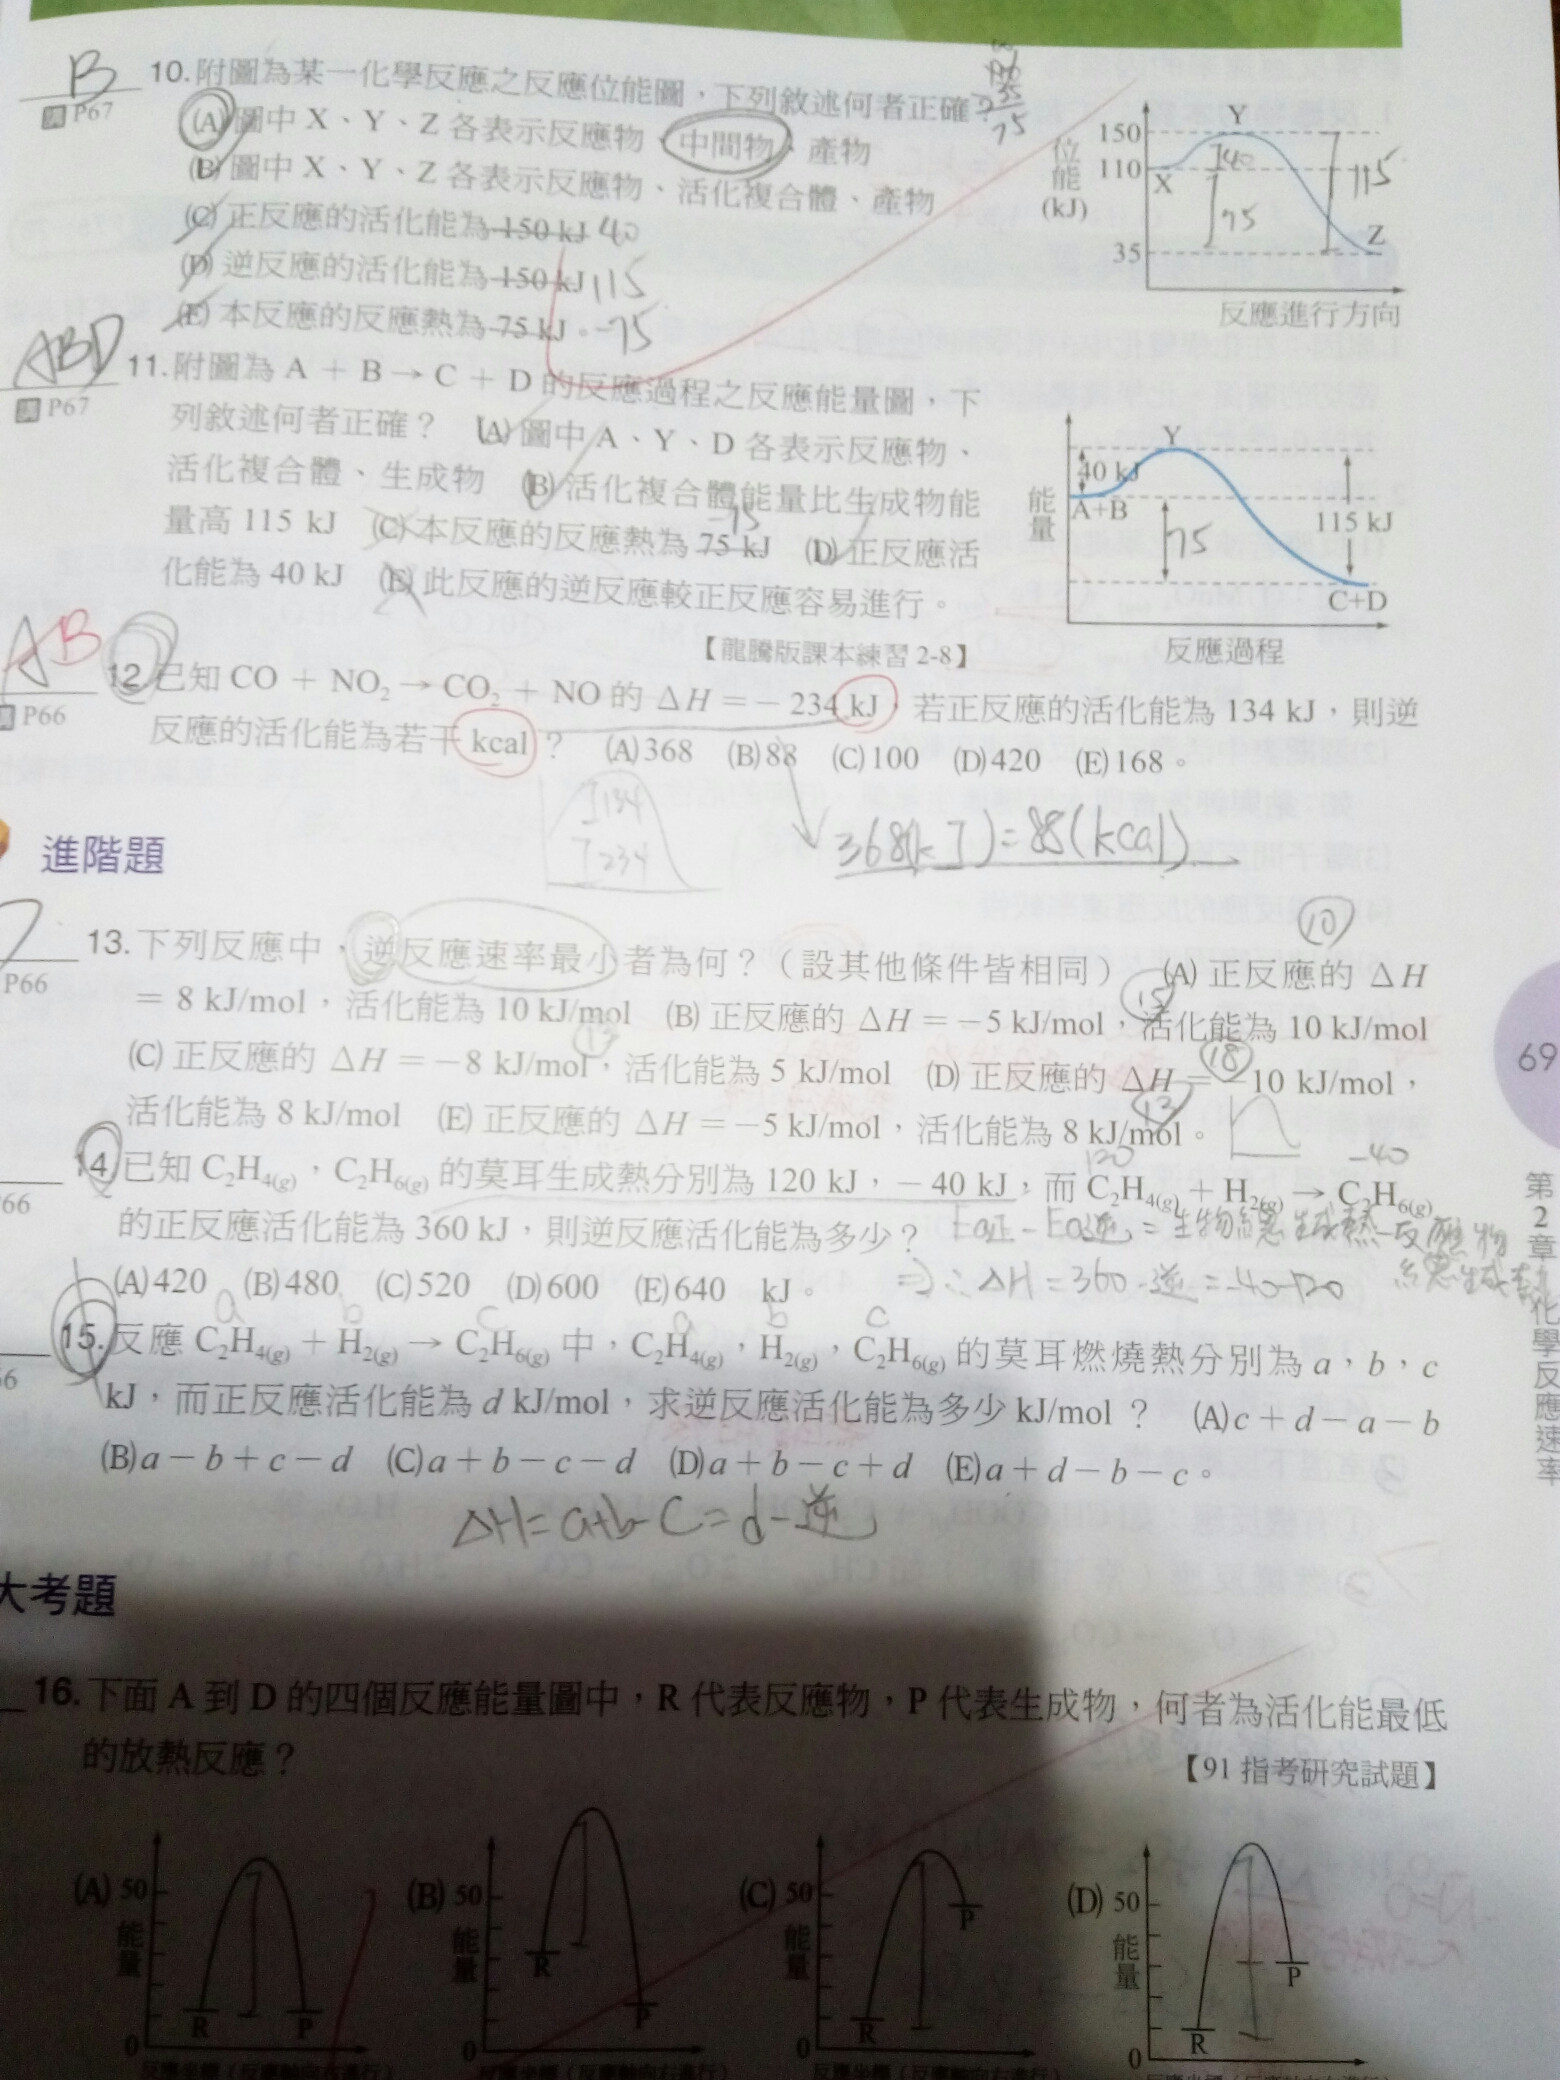 B
10.附圖為某一化學反應之反應位能圖，下列敘述何者正確？
P67
(A)圖中 X、Y、Z 各表示反應物、中間物、產物
(B)圖中 X、Y、Z 各表示反應物、活化複合體、產物
(C)正反應的活化能為 150 kJ 40
(D)逆反應的活化能為 150 kJ 115
(E)本反應的反應熱為 75 kJ。-75
位能(kJ)
150
110
35
X
Y
Z
40
75
115
反應進行方向
ABD
P67
11.附圖為 A + B → C + D 的反應過程之反應能量圖，下
列敘述何者正確？ (A)圖中 A、Y、D 各表示反應物、
活化複合體、生成物 (B)活化複合體能量比生成物能
-75
量高 115 kJ (C)本反應的反應熱為 75 kJ (D)正反應活
化能為 40 kJ (E)此反應的逆反應較正反應容易進行。
【龍騰版課本練習 2-8】
能量
Y
40 kJ
A+B
75
115 kJ
C+D
反應過程
AB
P66
12.已知 CO + NO₂ → CO₂ + NO 的 ΔH = − 234 kJ，若正反應的活化能為 134 kJ，則逆
反應的活化能為若干 kcal？ (A)368 (B)88 (C)100 (D)420 (E)168。
134
234
368(kJ)=88(kcal)
進階題
P66
10
13.下列反應中，逆反應速率最小者為何？（設其他條件皆相同） (A)正反應的 ΔH
15
= 8 kJ/mol，活化能為 10 kJ/mol (B)正反應的 ΔH = −5 kJ/mol，活化能為 10 kJ/mol
13
18
(C)正反應的 ΔH = −8 kJ/mol，活化能為 5 kJ/mol (D)正反應的 ΔH = −10 kJ/mol，
13
活化能為 8 kJ/mol (E)正反應的 ΔH = −5 kJ/mol，活化能為 8 kJ/mol。
120 -40
14.已知 C₂H₄(g)，C₂H₆(g) 的莫耳生成熱分別為 120 kJ，− 40 kJ，而 C₂H₄(g) + H₂(g) → C₂H₆(g)
66
的正反應活化能為 360 kJ，則逆反應活化能為多少？
Ea正 - Ea逆 = 生物總生成熱-反應物總生成熱
(A)420 (B)480 (C)520 (D)600 (E)640 kJ。
⇒∴ΔH=360-逆=-40-120
a b c a b c
15.反應 C₂H₄(g) + H₂(g) → C₂H₆(g) 中，C₂H₄(g)，H₂(g)，C₂H₆(g) 的莫耳燃燒熱分別為 a，b，c
kJ，而正反應活化能為 d kJ/mol，求逆反應活化能為多少 kJ/mol？ (A)c + d − a − b
(B)a − b + c − d (C)a + b − c − d (D)a + b − c + d (E)a + d − b − c。
ΔH=a+b-c=d-逆
大考題
16.下面 A 到 D 的四個反應能量圖中，R 代表反應物，P 代表生成物，何者為活化能最低
的放熱反應？
【91 指考研究試題】
(A) 50 能量 0 R P
(B) 50 能量 0 R P
(C) 50 能量 0 R P
(D) 50 能量 0 R P
69
第2章 化學反應速率